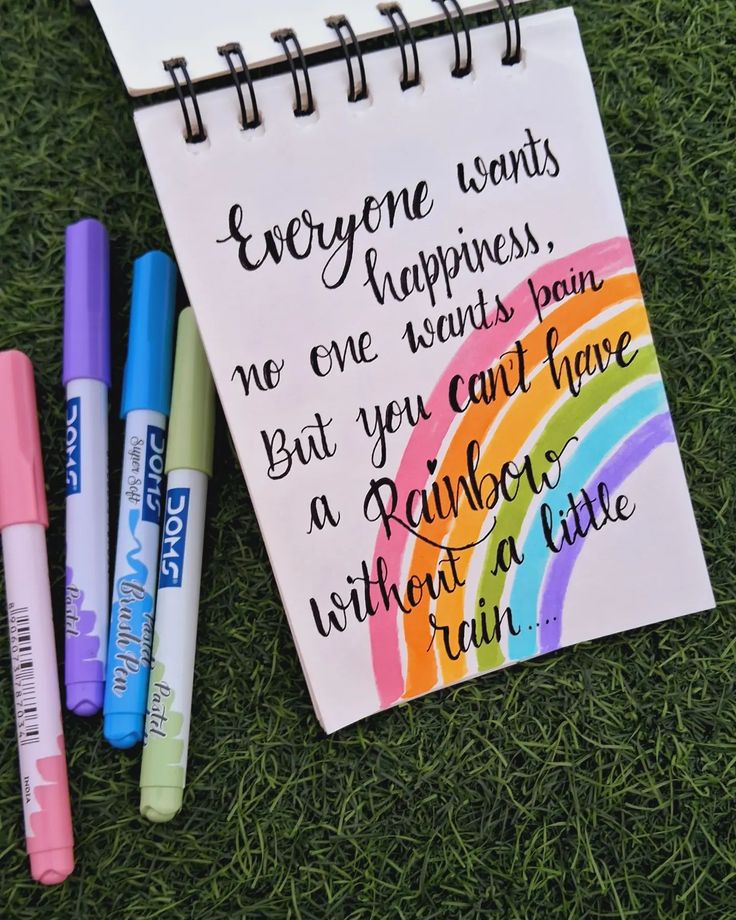 Everyone wants
happiness,
no one wants pain
But you can't have
a Rainbow
without a little
rain....
DOMS
Pastel
DOMS
Super Soft
Brush Pen
DOMS
Pastel
INDIA